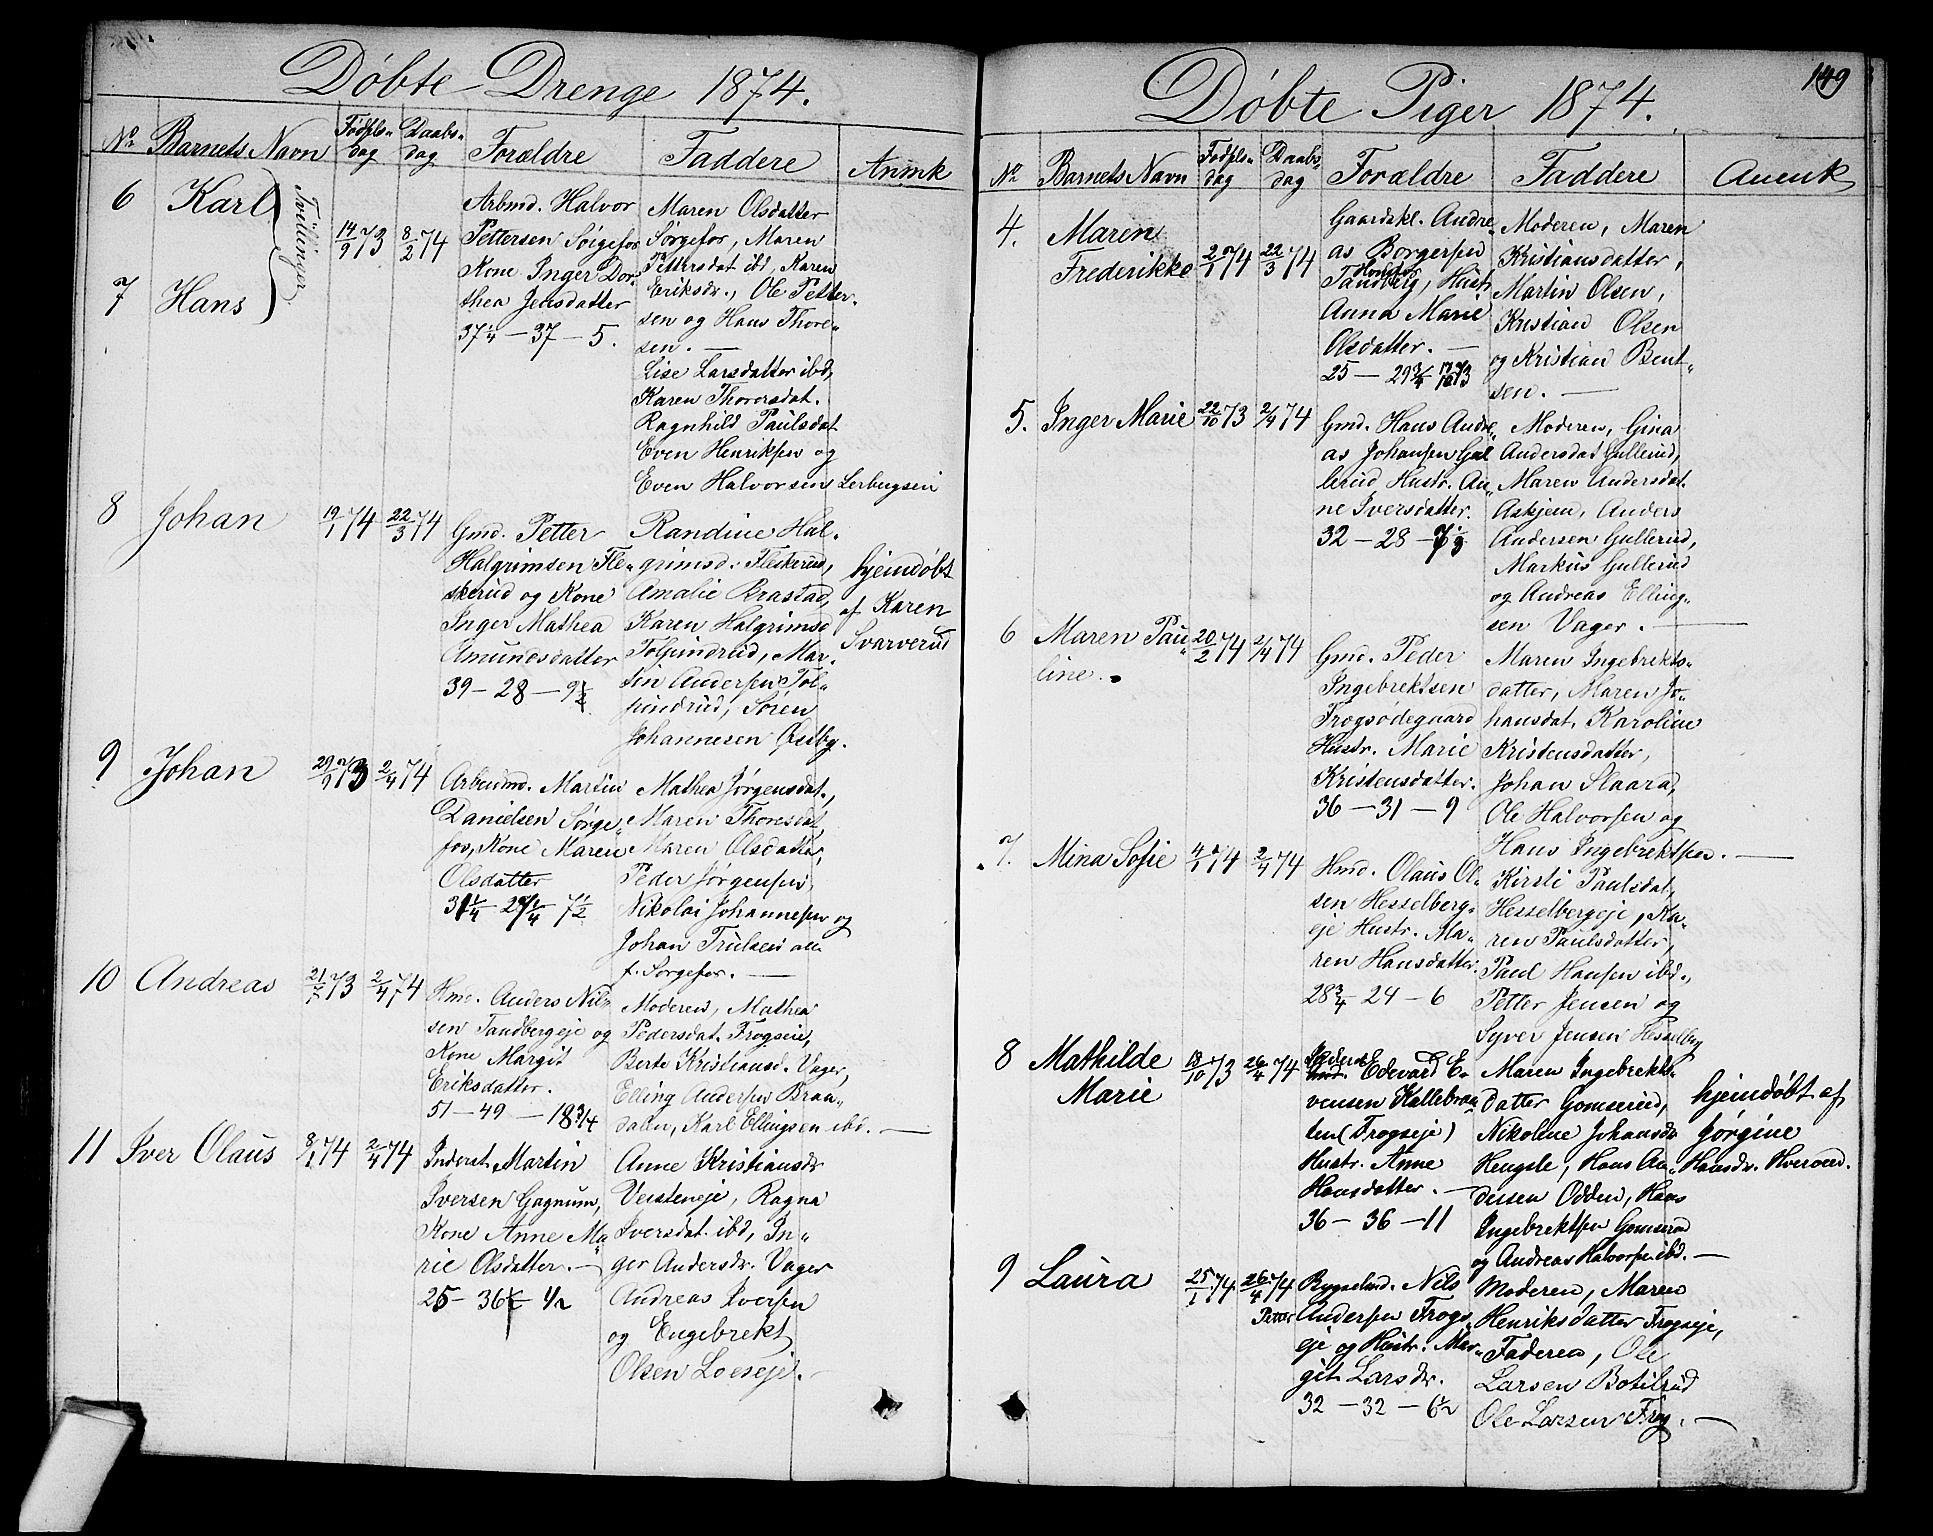 Döbte Drenge 1874.
No Barnets Navn Födsls-dag Daabs-dag Forældre Faddere Anmk
6 Karl
7 Hans
Tvillinger
14/9 73 8/2 74
Arbmd. Halvor
Pettersen Sörgefos
Kone Inger Dor-
thea Jensdatter
37 1/4 — 37 — 5.
Maren Olsdatter
Sørgefos, Maren
Pettersdat ibd, Karen
Eriksdr., Ole Petter-
sen og Hans Thore-
sen. —
Lise Larsdatter ibd,
Karen Thorersdat.
Ragnhild Paulsdat
Even Henriksen og
Even Halvorsen Lerbugsein
8 Johan 19/1 74 22/3 74
Gmd. Petter
Halgrimsen Fle-
skerud og Kone
Inger Mathea
Amundsdatter
39 — 28 — 9 1/2
Randine Hal-
grimsd. Fleskerud,
Amalie Brastad,
Karen Halgrimsd
Tolpindrud, Mar-
tin Andersen Tol-
pindrud, Sören
Johannesen Østby.
hjemdöbt
af Karen
Svarverud
9 Johan 29/9 73 2/4 74
Arbeidmd. Martin
Danielsen Sørge-
fos, Kone Maren
Olsdatter
31 1/4 — 27 1/4 — 7 1/2
Mathea Jørgensdat.,
Maren Thoresdat,
Maren Olsdatter,
Peder Jørgensen,
Nikolai Johannesen og
Johan Trulsen alle
f. Sørgefos. —
10 Andreas 21/7 73 2/4 74
Hmd. Anders Nil-
sen Tandbergeje og
Kone Margit
Eriksdatter.
51 — 49 — 18 3/4
Moderen, Mathea
Pedersdat. Frogseie,
Berte Kristiansd. Vager,
Elling Andersen Braa-
dalen, Karl Ellingsen ibd. —
11 Iver Olaus 8/1 74 2/4 74
Inderst. Martin
Iversen Gagnum,
Kone Anne Ma-
rie Olsdatter. —
25 — 36 1/2 1/2
Anne Kristiansdr
Veisteneje, Ragna
Iversdat. ibd, In-
ger Andersdr. Vager
Andreas Iversen
og Engebrekt
Olsen Loeseje. —
149
Döbte Piger 1874.
No Barnets Navn Födsls-dag Daabs-dag Forældre Faddere Anmk
4. Maren
Frederikke
2/1 74 22/3 74
Gaardskl. Andre-
as Borgersen
Tandberg, Hustr
Anna Marie
Olsdatter. —
25 — 29 3/4
Moderen, Maren
Kristiansdatter,
Martin Olsen,
Kristian Olsen
og Kristian Bent-
sen. —
5. Inger Marie 22/10 73 2/4 74
Gmd. Hans Andre-
as Johansen Gul-
lerud Hustr. An-
ne Iversdatter.
32 — 28 — 7 1/3
Moderen, Gina
Andersdat Gullerud,
Maren Andersdat.
Askjem, Anders
Andersen Gullerud,
Markus Gullerud
og Andreas Elling-
sen Vager. —
6 Maren Pau-
line.
20/2 74 2/4 74
Gmd. Peder
Ingebrektsen
Frogsødegaard
Hustr. Marie
Kristensdatter.
36 — 31 — 9
Maren Ingebrekts-
datter, Maren Jo-
hansdat. Karoline
Kristensdatter,
Johan Slaara,
Ole Halvorsen og
Hans Ingebrektsen. —
7. Mina Sofie 4/1 74 2/4 74
Hmd. Olaus Ol-
sen Hesselberg-
eje Hustr. Ma-
ren Hansdatter.
28 3/4 24 — 6
Kirsti Paulsdat,
Hesselbergeje, Ka-
ren Paulsdatter,
Paul Hansen ibd.,
Petter Jensen og
Syver Jensen Hesselbg
8 Mathilde
Marie
18/10 73 26/4 74
Edevard E-
vensen Kallebraa-
ten (Frogseje)
Hustr. Anne
Hansdatter. —
36 — 36 — 11
Maren Ingebrekts-
datter Gomserud,
Nikoline Johansdr
Hengsle, Hans An-
dersen Odden, Hans
Ingebrektsen Gomserud
og Andreas Halvorsen ibd. —
hjemdöbt af
Jörgine
Hansdr. Hverven.
9 Laura 25/1 74 26/4 74
Petter
Bygselmd. Nils
Andersen Frogs-
eje og Hustr. Mar-
git Larsdr.
32 — 32 — 6 1/2
Moderen, Maren
Henriksdatter Frogseje,
Faderen, Ole
Larsen Botilrud
Ole Larsen Frog. —